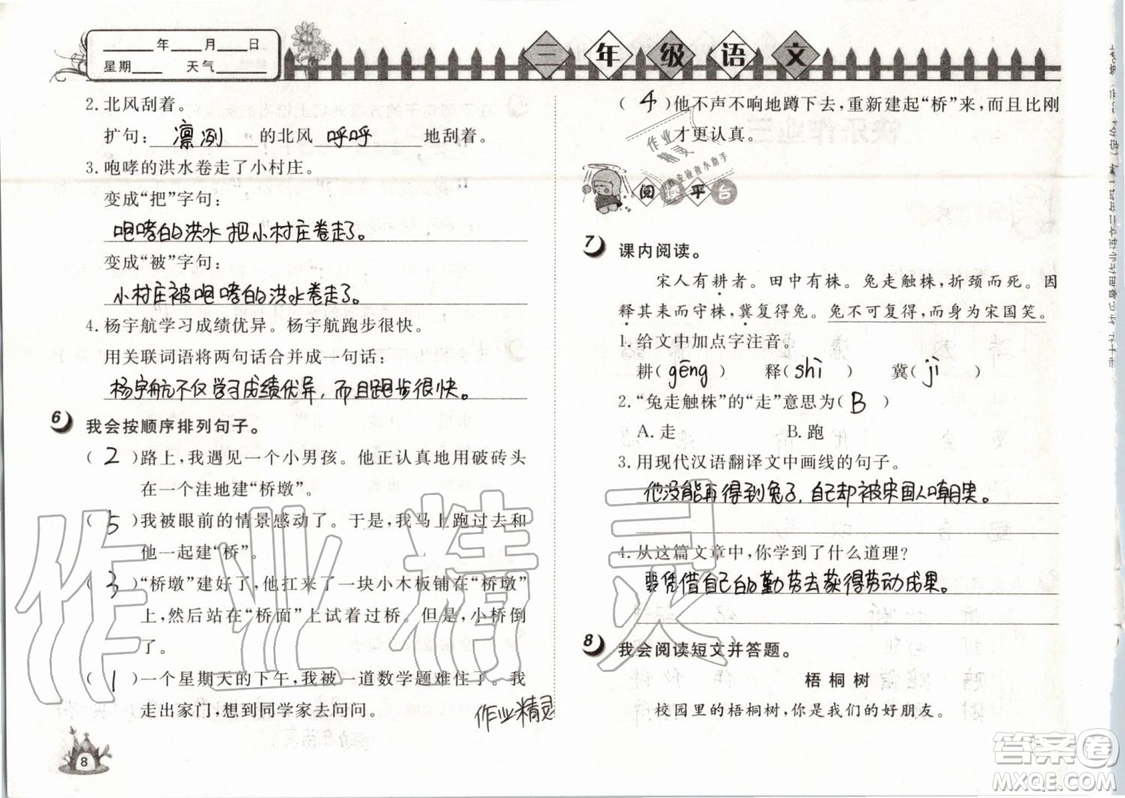 ____年____月____日
星期____ 天气____
三年级语文
2. 北风刮着。
扩句：凛冽的北风呼呼地刮着。
3. 咆哮的洪水卷走了小村庄。
变成“把”字句：
咆哮的洪水把小村庄卷走了。
变成“被”字句：
小村庄被咆哮的洪水卷走了。
4. 杨宇航学习成绩优异。杨宇航跑步很快。
用关联词语将两句话合并成一句话：
杨宇航不仅学习成绩优异，而且跑步很快。
6 我会按顺序排列句子。
（2）路上，我遇见一个小男孩。他正认真地用破砖头
在一个洼地建“桥墩”。
（5）我被眼前的情景感动了。于是，我马上跑过去和
他一起建“桥”。
（3）“桥墩”建好了，他扛来了一块小木板铺在“桥墩”
上，然后站在“桥面”上试着过桥。但是，小桥倒
了。
（1）一个星期天的下午，我被一道数学题难住了。我
走出家门，想到同学家去问问。
作业精灵
8
（4）他不声不响地蹲下去，重新建起“桥”来，而且比刚
才更认真。
作业
精灵
阅读平台
7 课内阅读。
宋人有耕者。田中有株。兔走触株，折颈而死。因
释其耒而守株，冀复得兔。兔不可复得，而身为宋国笑。
1. 给文中加点字注音。
耕（gēng） 释（shì） 冀（jì）
2. “兔走触株”的“走”意思为（B）
A. 走 B. 跑
3. 用现代汉语翻译文中画线的句子。
他没能再得到兔子，自己却被宋国人嘲笑。
4. 从这篇文章中，你学到了什么道理？
要凭借自己的勤劳去获得劳动成果。
8 我会阅读短文并答题。
梧桐树
校园里的梧桐树，你是我们的好朋友。
作业精灵
答案圈
MXQE.COM